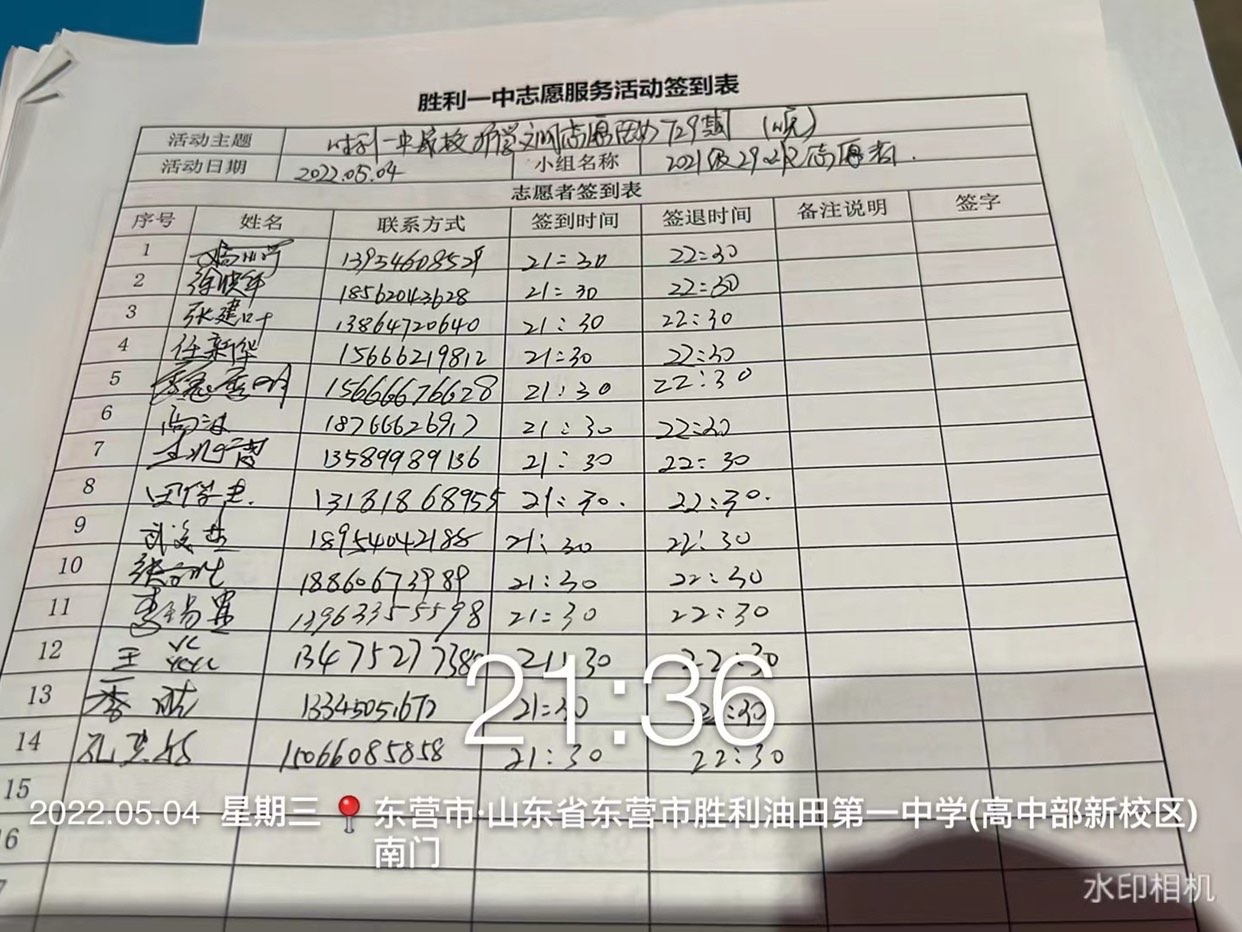 胜利一中志愿服务活动签到表
活动主题
活动日期 2022.05.04 小组名称 2021级29 志愿者.
志愿者签到表
序号 姓名 联系方式 签到时间 签退时间 备注说明 签字
1 13954608529 21:30 22:30
2 徐晓华 18562043628 21:30 22:30
3 张建叶 13864720640 21:30 22:30
4 任新华 15666219812 21:30 22:30
5 15666676628 21:30 22:30
6 高波 18766626917 21:30 22:30
7 13589989136 21:30 22:30
8 13181868955 21:30. 22:30.
9 18954042188 21:30 22:30
10 18860673989 21:30 22:30
11 13963355598 21:30 22:30
12 王 21:30 22:30
13 21:30 22:30
14 15066085858 21:30 22:30
15
16
7
21:36
2022.05.04 星期三 东营市·山东省东营市胜利油田第一中学(高中部新校区)
南门
水印相机